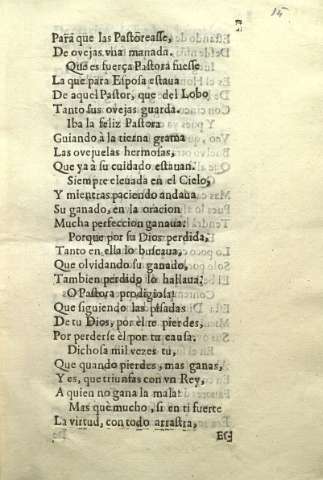 15
Para que las Pastoreasse,
De ovejas vna manada.
Que es fuerça Pastora fuesse
La que para Esposa estaua
De aquel Pastor, que del Lobo
Tanto sus ovejas guarda.
Iba la feliz Pastora
Guiando à la tierna grama
Las ovejuelas hermosas,
Que ya à su cuidado estauan.
Siempre eleuada en el Cielo,
Y mientras paciendo andaua
Su ganado, en la oracion
Mucha perfeccion ganaua:
Porque por su Dios perdida,
Tanto en ella lo buscaua,
Que olvidando su ganado,
Tambien perdido lo hallaua.
O Pastora prodigiosa!
Que siguiendo las pisadas
De tu Dios, por èl te pierdes,
Por perderse èl por tu causa.
Dichosa mil vezes tu,
Que quando pierdes, mas ganas,
Y es, que triunfas con vn Rey,
A quien no gana la mala!
Mas què mucho, si en ti fuerte
La virtud, con todo arrastra,